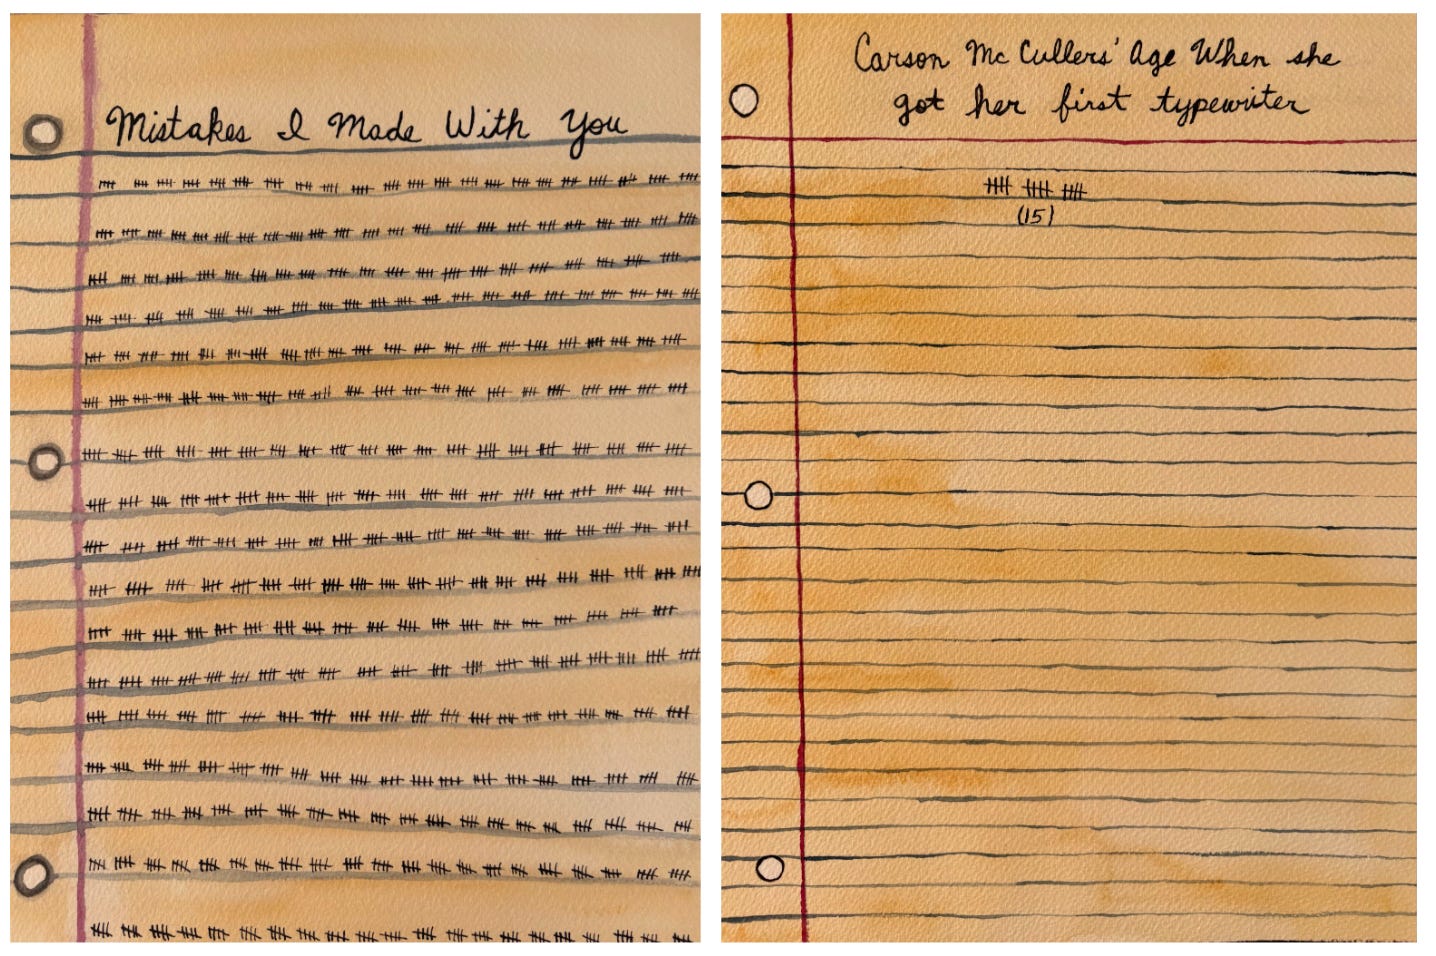 Mistakes I Made With You
Carson McCullers' Age When she
got her first typewriter
(15)